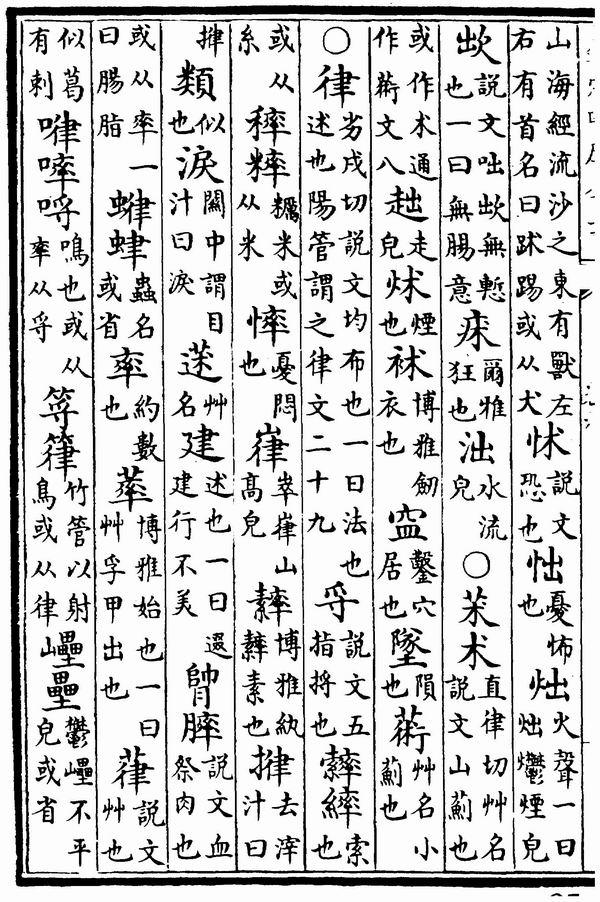 山海經流沙之東有獸左右有首名曰䟣踢或从犬怵說文恐也怞憂怖也炪火聲一曰炪鬱煙皃
欪說文咄欪無慙也一曰無腸意㾁爾雅狂也泏水流皃〇苿朮直律切艸名說文山薊也
或作术通作䕒文八䟣走皃炢煙也袕博雅劒衣也窋鑿穴居也墜隕也蒁艸名小薊也
〇律劣戌切說文均布也一曰法也述也陽管謂之律文二十九寽說文五指捋也繂索也
或从糸稡粹糲米或从米㥞憂悶也嵂崒嵂山高皃䌦博雅紈䌦素也㧒去滓汁曰
㧒類似也淚關中謂目汁曰淚䔞艸名建述也一曰䢐建行不美膟說文血祭肉也
或从率一曰腸脂䗈蜶蟲名或省率約數也䔞博雅始也一曰艸孚甲出也葎說文艸也
似葛有刺嘩啐哷鳴也或从率从寽䇏箻竹管以射鳥或从律壘鬱壘不平皃或省